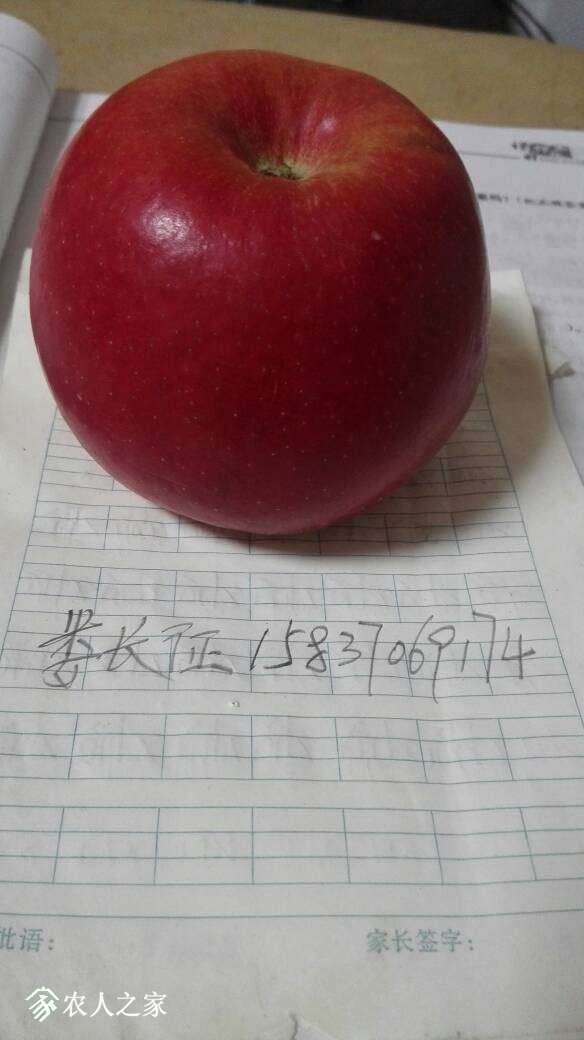 娄长征 15837069174
批语：
家长签字：
农人之家